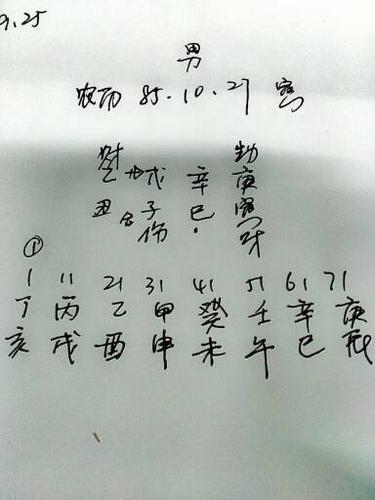 9.25
男
农历 85.10.27 寅
戊 辛 庚
子 巳 寅
伤
①
1 11 21 31 41 51 61 71
丁 丙 乙 甲 癸 壬 辛 庚
亥 戌 酉 申 未 午 巳 辰